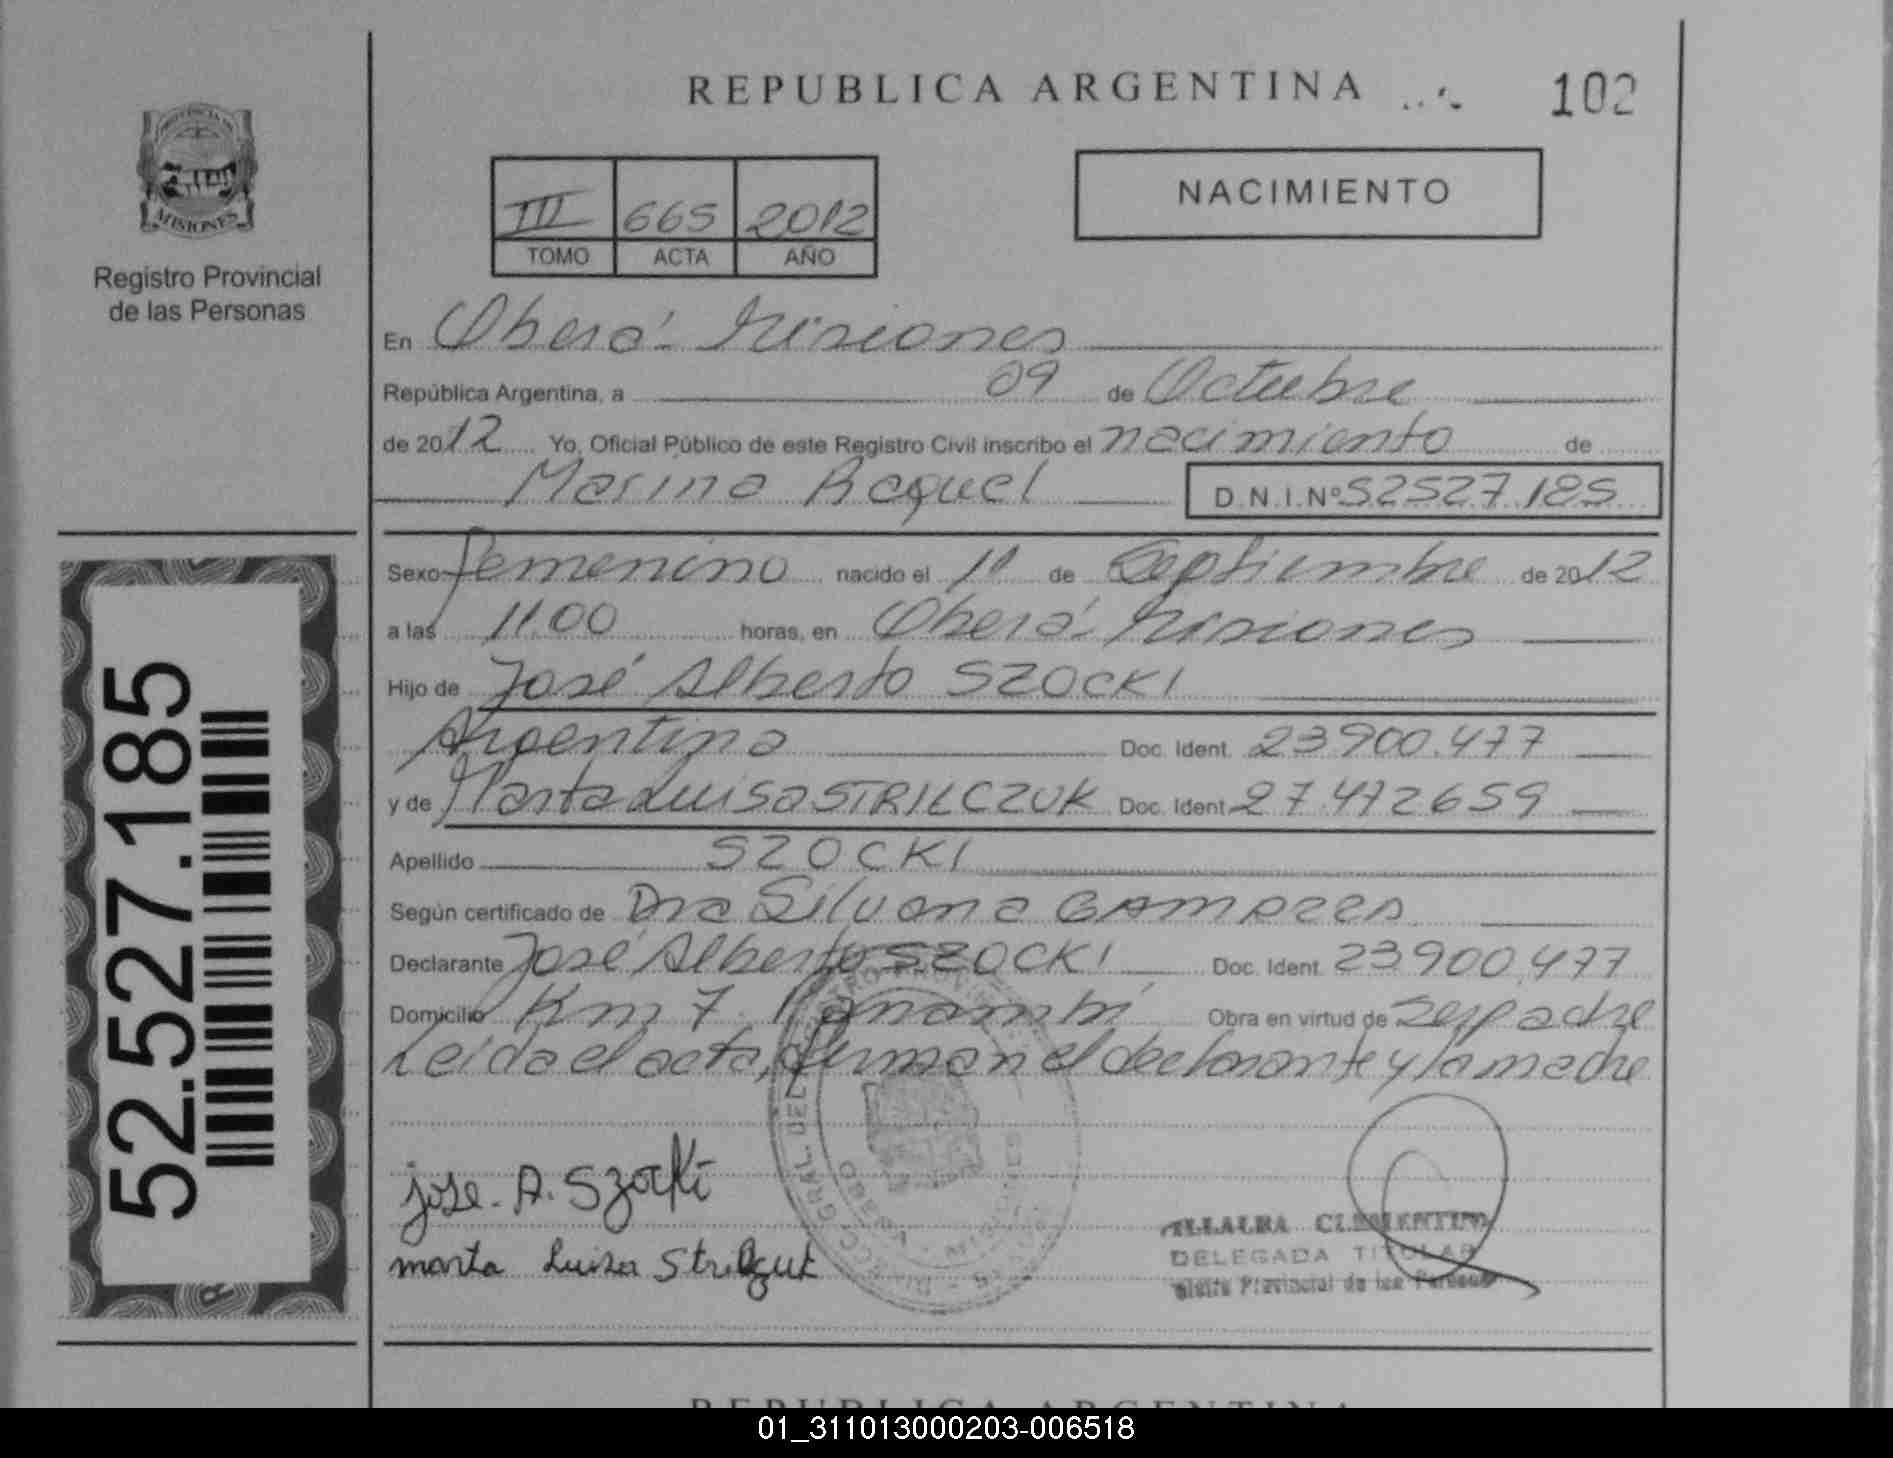 REPUBLICA ARGENTINA
102
PROVINCIA DE
MISIONES
Registro Provincial
de las Personas
III 665 2012
TOMO ACTA AÑO
NACIMIENTO
En Oberá - Misiones
República Argentina, a 09 de Octubre
de 2012 Yo, Oficial Público de este Registro Civil inscribo el nacimiento de
Marina Raquel D.N.I.Nº 52527.185
Sexo femenino nacido el 11 de Septiembre de 2012
a las 11.00 horas, en Oberá - Misiones
Hijo de José Alberto SZOCKI
Argentina Doc. Ident. 23.900.477
y de Marta Luisa STRILCZUK Doc. Ident. 27.472659
Apellido SZOCKI
Según certificado de Dra Silvana
Declarante José Alberto SZOCKI Doc. Ident. 23900.477
Domicilio Km 7. Panambí Obra en virtud de ser padre
Leída el acta, firman el declarante y la madre
Jose. A. Szocki
marta Luisa Strilczuk
CLEMENTINA
DELEGADA TITULAR
Provincial de las Personas
52.527.185
REPUBLICA ARGENTINA
01_311013000203-006518